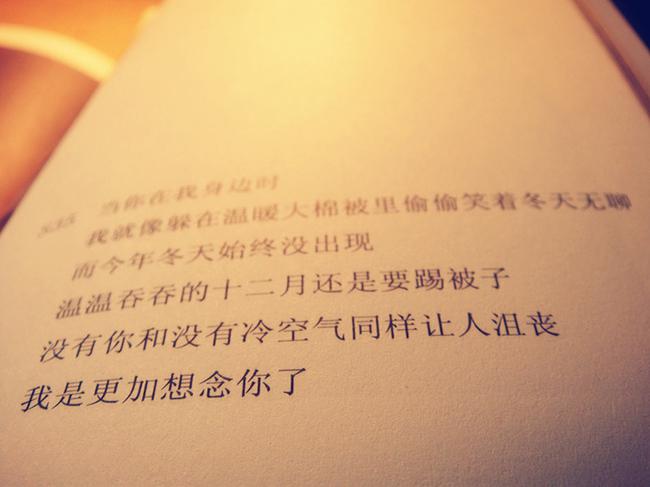 535 当你在我身边时
我就像躲在温暖大棉被里偷偷笑着冬天无聊
而今年冬天始终没出现
温温吞吞的十二月还是要踢被子
没有你和没有冷空气同样让人沮丧
我是更加想念你了